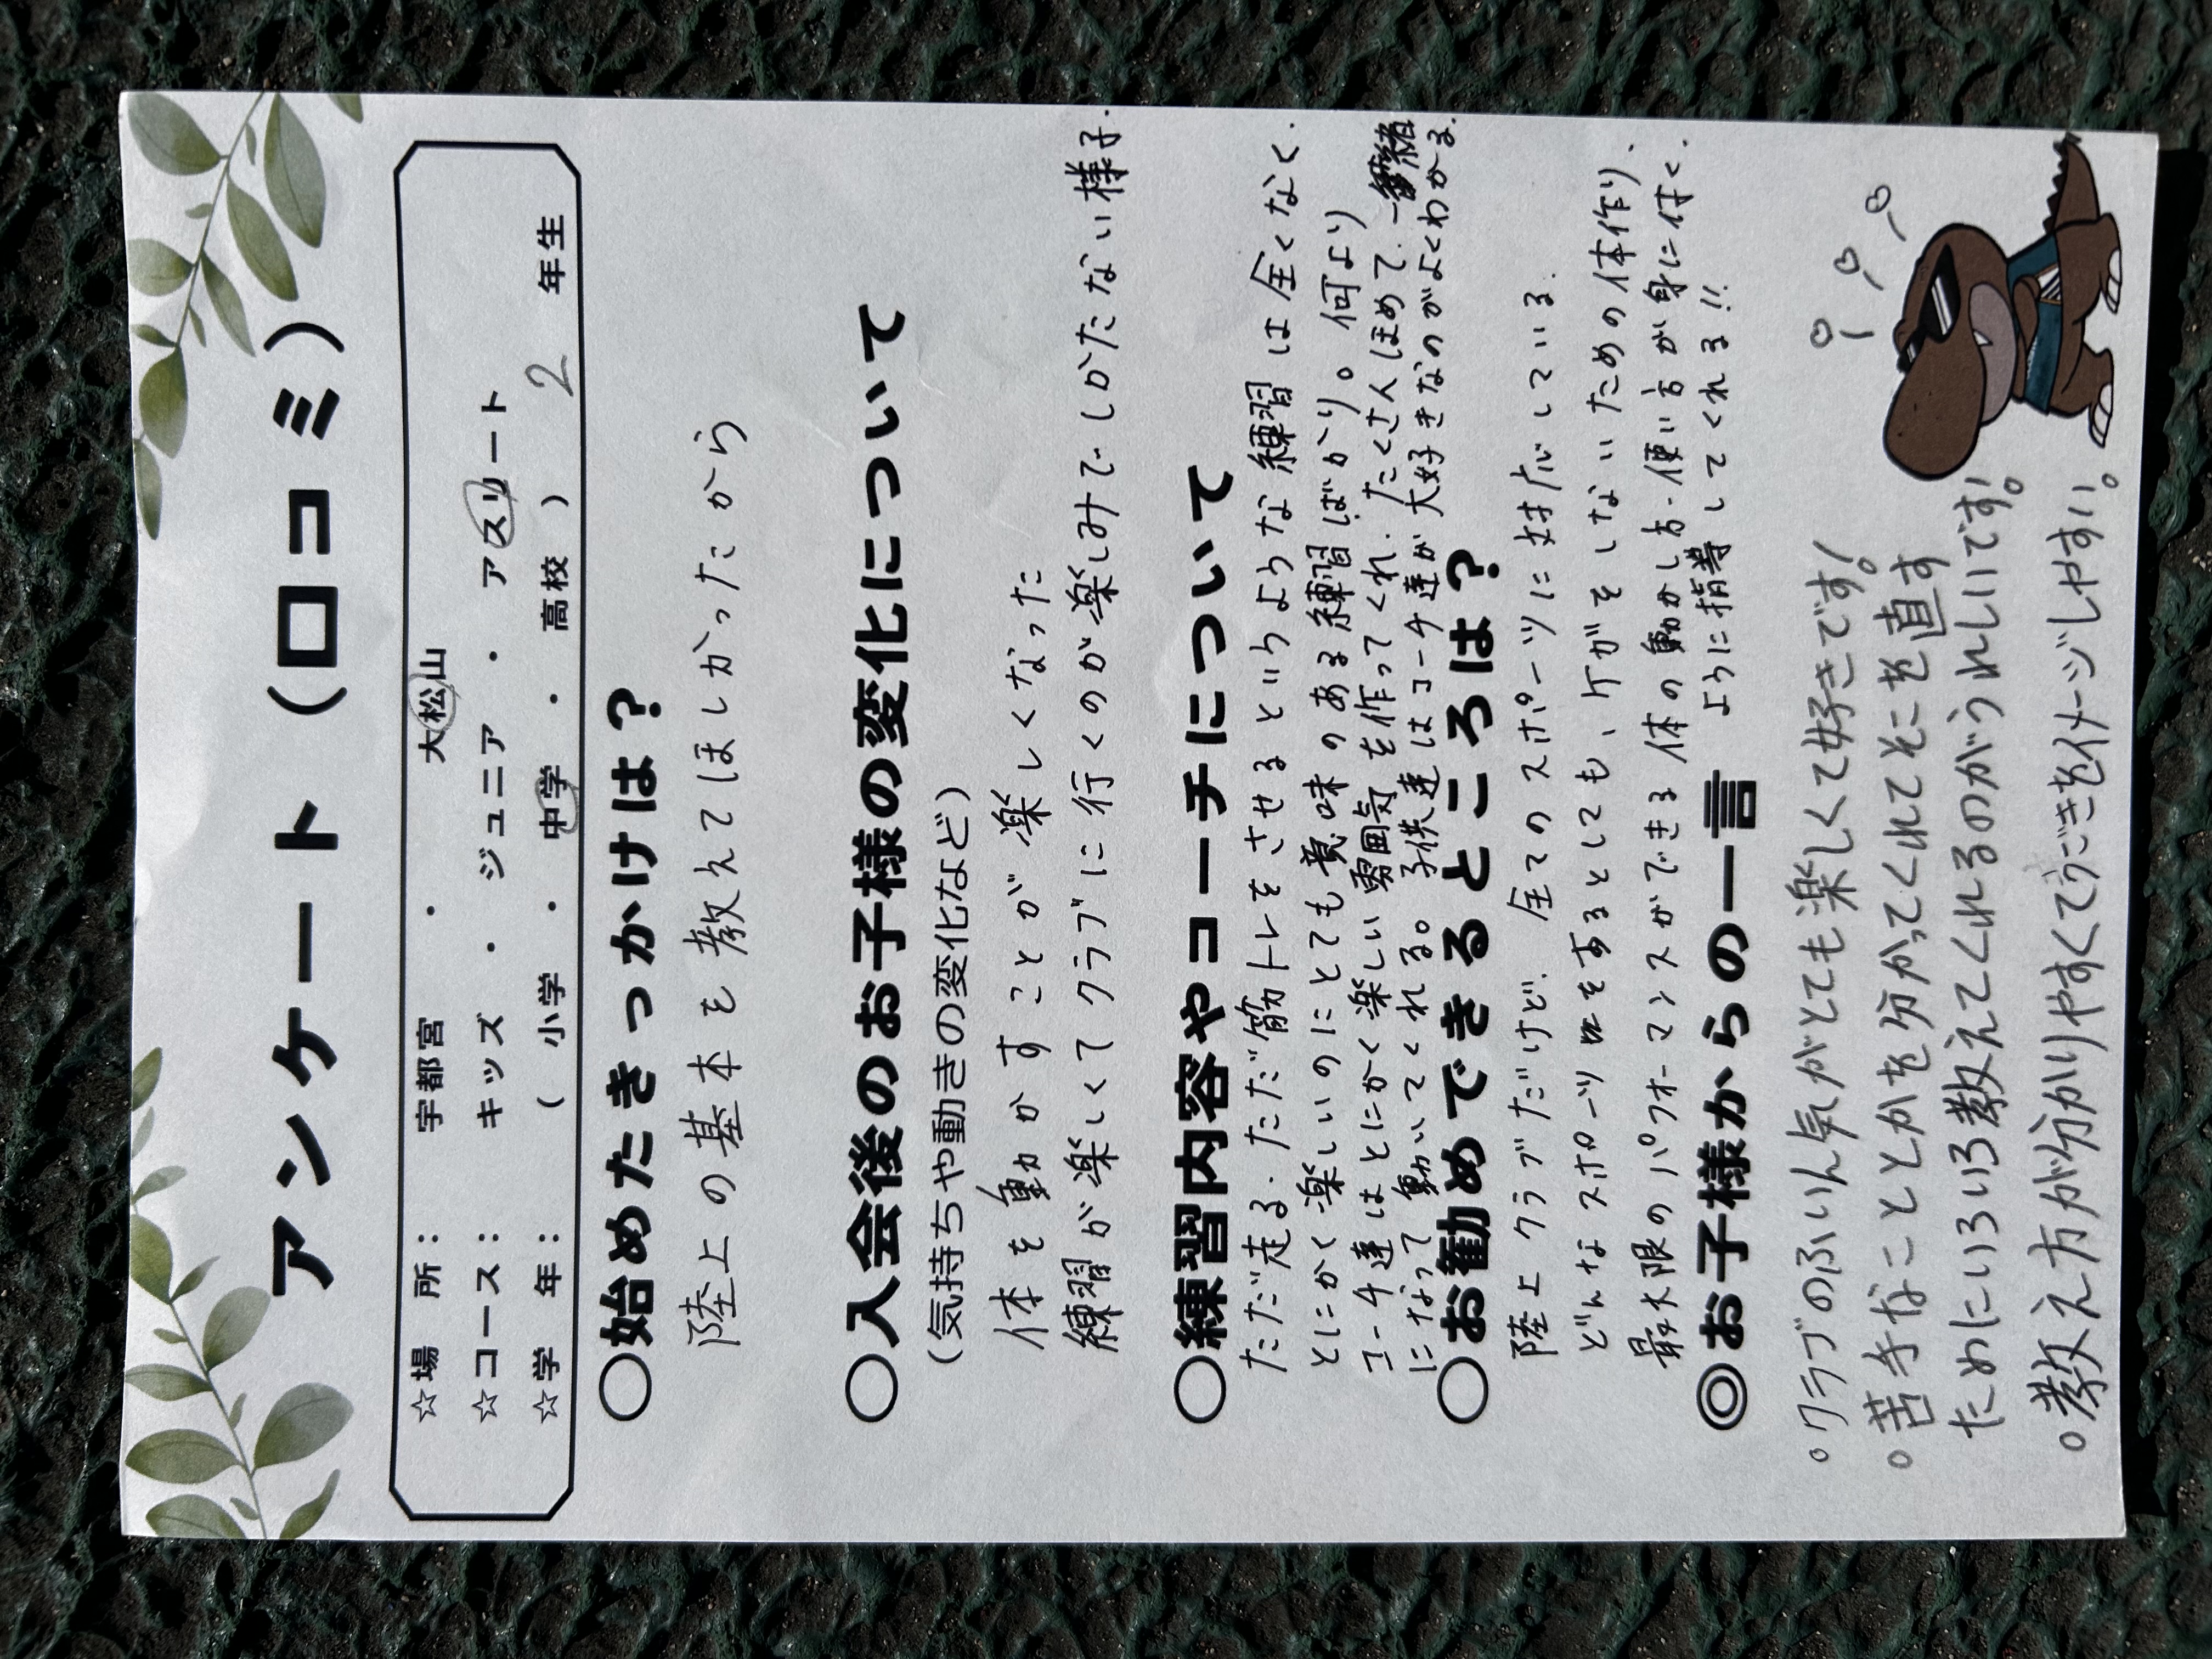 アンケート（口コミ）
☆場　所：　宇都宮　・　大松山
☆コース：　キッズ　・　ジュニア　・　アスリート
☆学　年：　（　小学　・　中学　・　高校　）　2　年生
○始めたきっかけは？
陸上の基本を教えてほしかったから
○入会後のお子様の変化について
（気持ちや動きの変化など）
体を動かすことが楽しくなった
練習が楽しくてクラブに行くのが楽しみでしかたない様子.
○練習内容やコーチについて
ただ走る.ただ筋トレをさせるというような練習は全くなく.
とにかく楽しいのにとても意味のある練習ばかり。何より
コーチ達はとにかく楽しい雰囲気を作ってくれ.たくさんほめて.一緒
になって動いてくれる。子供達はコーチ達が大好きなのがよくわかる.
○お勧めできるところは？
陸上クラブだけど.全てのスポーツに対応している.
どんなスポーツをするとしても、ケガをしないための体作り.
最大限のパフォーマンスができる体の動かし方・使い方が身に付く.
ように指導してくれる!!
◎お子様からの一言
○クラブのふいん気がとても楽しくて好きです!
○苦手なこととかを分かってくれてそこを直す
ためにいろいろ教えてくれるのがうれしいです。
○教え方が分かりやすくてうごきをイメージしやすい。